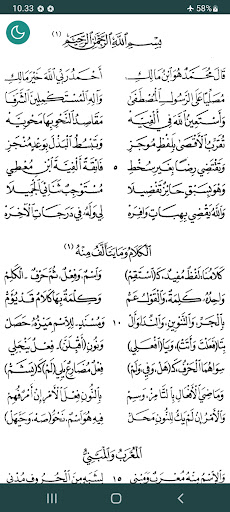 10.33
58%
بِسْمِ اللَّهِ الرَّحْمَٰنِ الرَّحِيمِ (١)
قَالَ مُحَمَّدٌ هُوَ ابْنُ مَالِكِ أَحْمَدُ رَبِّي اللَّهَ خَيْرَ مَالِكِ
مُصَلِّيًا عَلَى الرَّسُولِ الْمُصْطَفَى وَآلِهِ الْمُسْتَكْمِلِينَ الشَّرَفَا
وَأَسْتَعِينُ اللَّهَ فِي أَلْفِيَّهْ مَقَاصِدُ النَّحْوِ بِهَا مَحْوِيَّهْ
تُقَرِّبُ الْأَقْصَى بِلَفْظٍ مُوجَزِ وَتَبْسُطُ الْبَذْلَ بِوَعْدٍ مُنْجَزِ
وَتَقْتَضِي رِضًا بِغَيْرِ سُخْطِ ٥ فَائِقَةً أَلْفِيَّةَ ابْنِ مُعْطِي
وَهُوَ بِسَبْقٍ حَائِزٌ تَفْضِيلَا مُسْتَوْجِبٌ ثَنَائِيَ الْجَمِيلَا
وَاللَّهُ يَقْضِي بِهِبَاتٍ وَافِرَهْ لِي وَلَهُ فِي دَرَجَاتِ الْآخِرَهْ
الْكَلَامُ وَمَا يَتَأَلَّفُ مِنْهُ (١)
كَلَامُنَا لَفْظٌ مُفِيدٌ، كَ(اسْتَقِمْ) وَاسْمٌ، وَفِعْلٌ، ثُمَّ حَرْفٌ - الْكَلِمْ
وَاحِدُهُ: كَلِمَةٌ، وَالْقَوْلُ عَمّْ وَكَلْمَةٌ بِهَا كَلَامٌ قَدْ يُؤَمّْ
بِالْجَرِّ، وَالتَّنْوِينِ، وَالنِّدَا، وَ(أَلْ) ١٠ وَمُسْنَدٍ - لِلِاسْمِ مَيْزُهُ حَصَلْ
بِتَا (فَعَلْتَ) وَ(أَتَتْ)، وَيَا (افْعَلِي) وَنُونِ (أَقْبِلَنَّ) - فِعْلٌ يَنْجَلِي
سِوَاهُمَا الْحَرْفُ، كَ(هَلْ، وَفِي، وَلَمْ) فِعْلٌ مُضَارِعٌ يَلِي (لَمْ) كَ(يَشَمّْ)
وَمَاضِيَ الْأَفْعَالِ بِالتَّا مِزْ، وَسِمْ بِالنُّونِ فِعْلَ الْأَمْرِ إِنْ أَمْرٌ فُهِمْ
وَالْأَمْرُ إِنْ لَمْ يَكُ لِلنُّونِ مَحَلّْ فِيهِ هُوَ اسْمٌ، نَحْوُ (صَهْ، وَحَيَّهَلْ)
الْمُعْرَبُ وَالْمَبْنِيُّ
وَالِاسْمُ مِنْهُ مُعْرَبٌ وَمَبْنِي لِشَبَهٍ مِنَ الْحُرُوفِ مُدْنِي